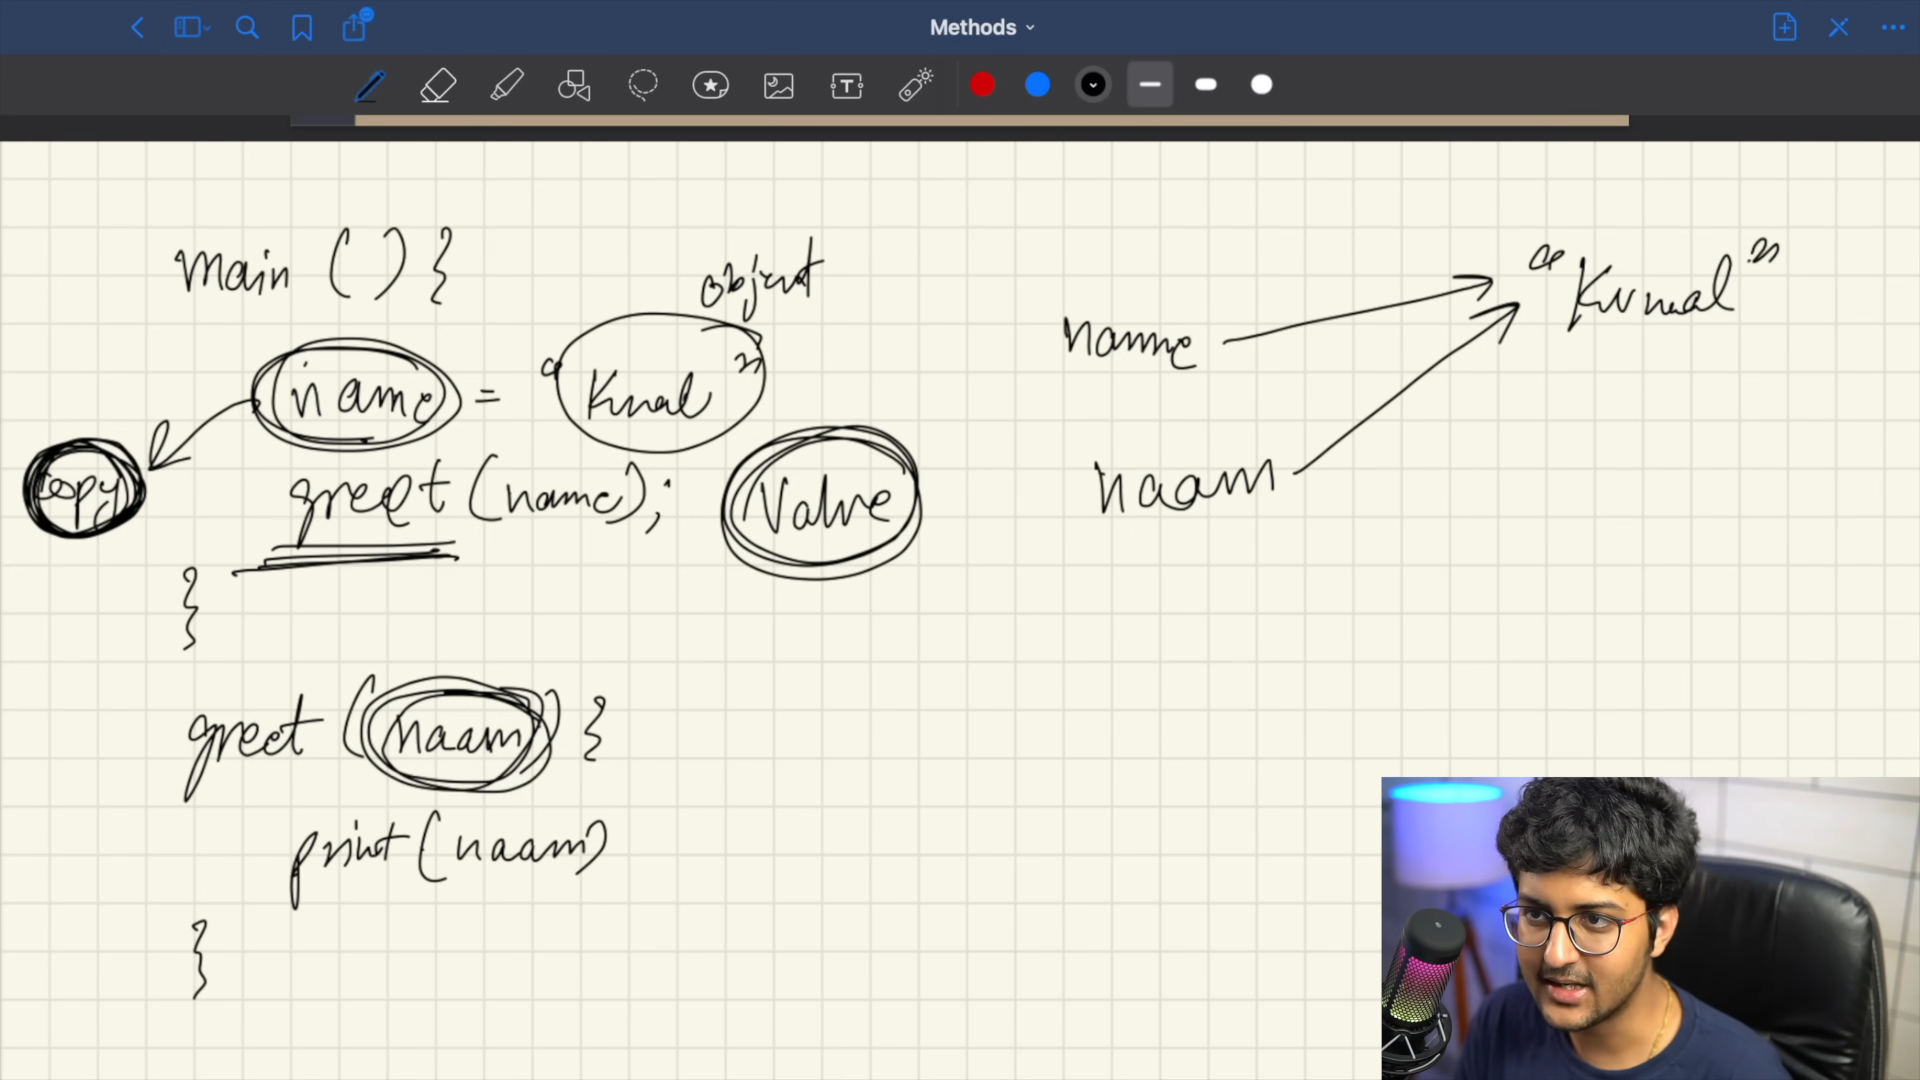 Methods
main () {
object
name = "Knal"
copy
greet (name);
Value
}
greet (naam) {
print (naam)
}
name
"Kunal"
naam